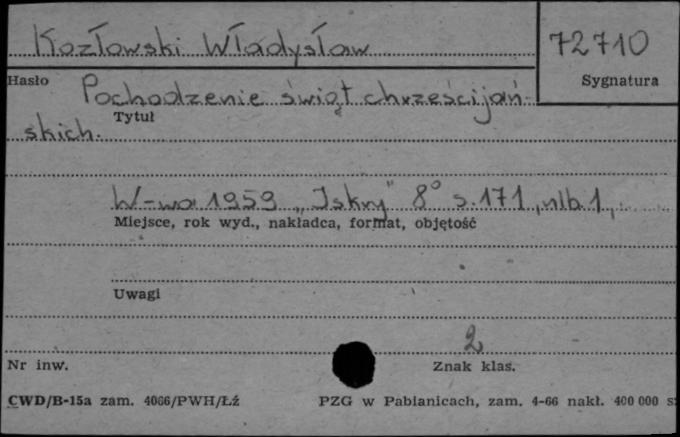 Kozłowski Władysław
72710
Hasło
Sygnatura
Pochodzenie świąt chrześcijań-
Tytuł
skich.
W-wa 1959 „Iskry" 8° s. 171, nlb. 1,
Miejsce, rok wyd., nakładca, format, objętość
Uwagi
2
Nr inw.
Znak klas.
CWD/B-15a zam. 4066/PWH/Łź
PZG w Pabianicach, zam. 4-66 nakł. 400 000 s